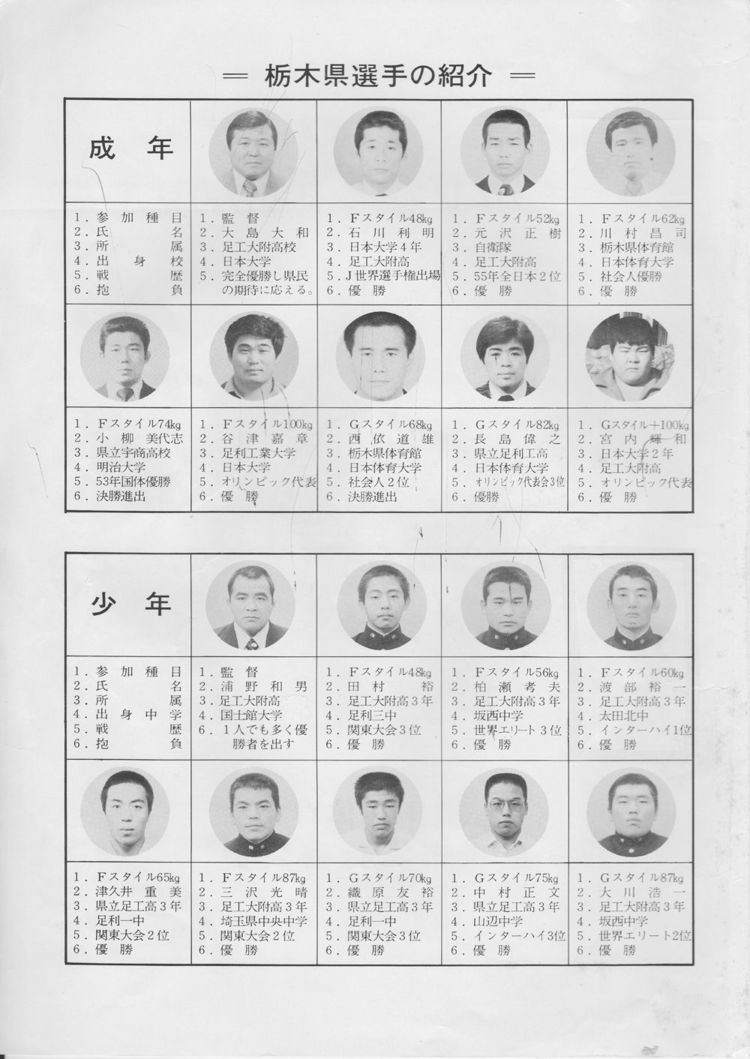 ＝ 栃木県選手の紹介 ＝
成年
1．参加種目
2．氏名
3．所属
4．出身校
5．戦歴
6．抱負
1．監督
2．大島大和
3．足工大附高校
4．日本大学
5．完全優勝し県民
の期待に応える。
1．Fスタイル48kg
2．石川利明
3．日本大学4年
4．足工大附高
5．J世界選手権出場
6．優勝
1．Fスタイル52kg
2．元沢正樹
3．自衛隊
4．足工大附高
5．55年全日本2位
6．優勝
1．Fスタイル62kg
2．川村昌司
3．栃木県体育館
4．日本体育大学
5．社会人優勝
6．優勝
1．Fスタイル74kg
2．小柳美代志
3．県立宇商高校
4．明治大学
5．53年国体優勝
6．決勝進出
1．Fスタイル100kg
2．谷津嘉章
3．足利工業大学
4．日本大学
5．オリンピック代表
6．優勝
1．Gスタイル68kg
2．西依道雄
3．栃木県体育館
4．日本体育大学
5．社会人2位
6．決勝進出
1．Gスタイル82kg
2．長島偉之
3．県立足利工高
4．日本体育大学
5．オリンピック代表会3位
6．優勝
1．Gスタイル＋100kg
2．宮内輝和
3．日本大学2年
4．足工大附高
5．オリンピック代表
6．優勝
少年
1．参加種目
2．氏名
3．所属
4．出身中学
5．戦歴
6．抱負
1．監督
2．浦野和男
3．足工大附高
4．国士館大学
6．1人でも多く優
勝者を出す
1．Fスタイル48kg
2．田村裕
3．足工大附高3年
4．足利三中
5．関東大会3位
6．優勝
1．Fスタイル56kg
2．柏瀬考夫
3．足工大附高3年
4．坂西中学
5．世界エリート3位
6．優勝
1．Fスタイル60kg
2．渡部裕一
3．足工大附高3年
4．太田北中
5．インターハイ1位
6．優勝
1．Fスタイル65kg
2．津久井重美
3．県立足工高3年
4．足利一中
5．関東大会2位
6．優勝
1．Fスタイル87kg
2．三沢光晴
3．足工大附高3年
4．埼玉県中央中学
5．関東大会2位
6．優勝
1．Gスタイル70kg
2．織原友裕
3．県立足工高3年
4．足利一中
5．関東大会3位
6．優勝
1．Gスタイル75kg
2．中村正文
3．県立足工高3年
4．山辺中学
5．インターハイ3位
6．優勝
1．Gスタイル87kg
2．大川浩一
3．足工大附高3年
4．坂西中学
5．世界エリート2位
6．優勝